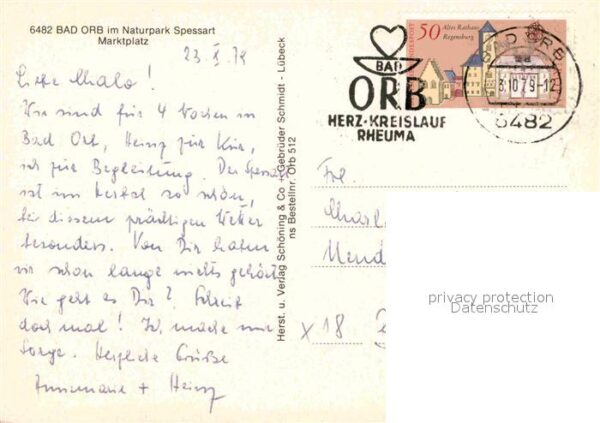 6482 BAD ORB im Naturpark Spessart
Marktplatz
23. X. 79
Liebe Malo!
Wir sind für 4 Wochen in
Bad Orb, Heinz zur Kur,
ich zur Begleitung. Der Spessart
ist im Herbst so schön,
bei diesem prächtigen Wetter
besonders. Von Dir haben
wir schon lange nichts gehört
Wie geht es Dir? Schreib
doch mal! Ich mache mir
Sorge. Herzliche Grüße
Annemarie + Heinz
Herst. u. Verlag Schöning & Co + Gebrüder Schmidt - Lübeck
ns Bestellnr. Orb 512
50 Altes Rathaus
Regensburg
BAD
ORB
HERZ-KREISLAUF
RHEUMA
BAD ORB
10.79-12
6482
Frl.
privacy protection
Datenschutz